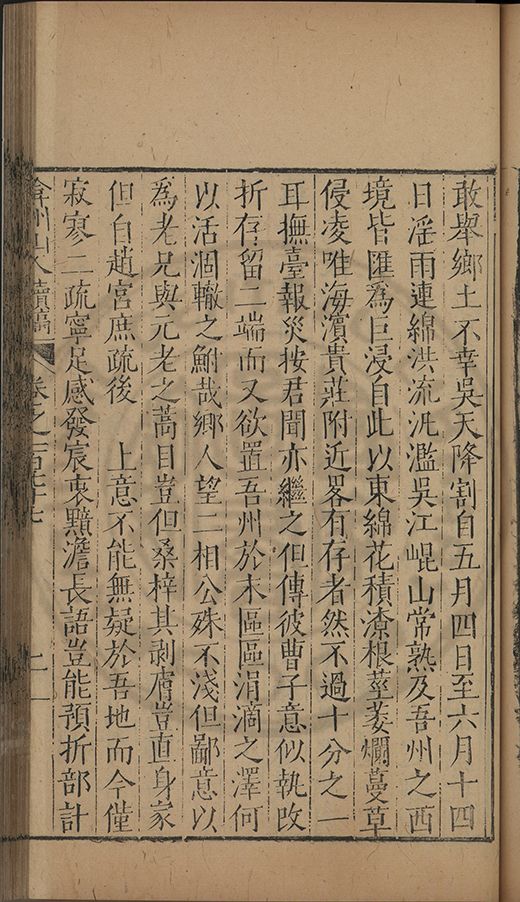 敢舉鄉土不幸吳天降割自五月四日至六月十四
日淫雨連綿洪流汎濫吳江崐山常熟及吾州之西
境皆匯為巨浸自此以東綿花積潦根莖萎爛蔓草
侵凌唯海濱貴莊附近畧有存者然不過十分之一
耳撫臺報災按君聞亦繼之但傳彼曹子意似執改
折存留二端而又欲置吾州於末區區涓滴之澤何
以活涸轍之鮒哉鄉人望二相公殊不淺但鄙意以
為老兄與元老之蒿目豈但桑梓其剥膚豈直身家
但自趙宮庶疏後　上意不能無疑於吾地而今僅
寂寥二疏寧足感發宸衷黯澹長語豈能預折部計
弇州山人續稿　卷之一百七十七